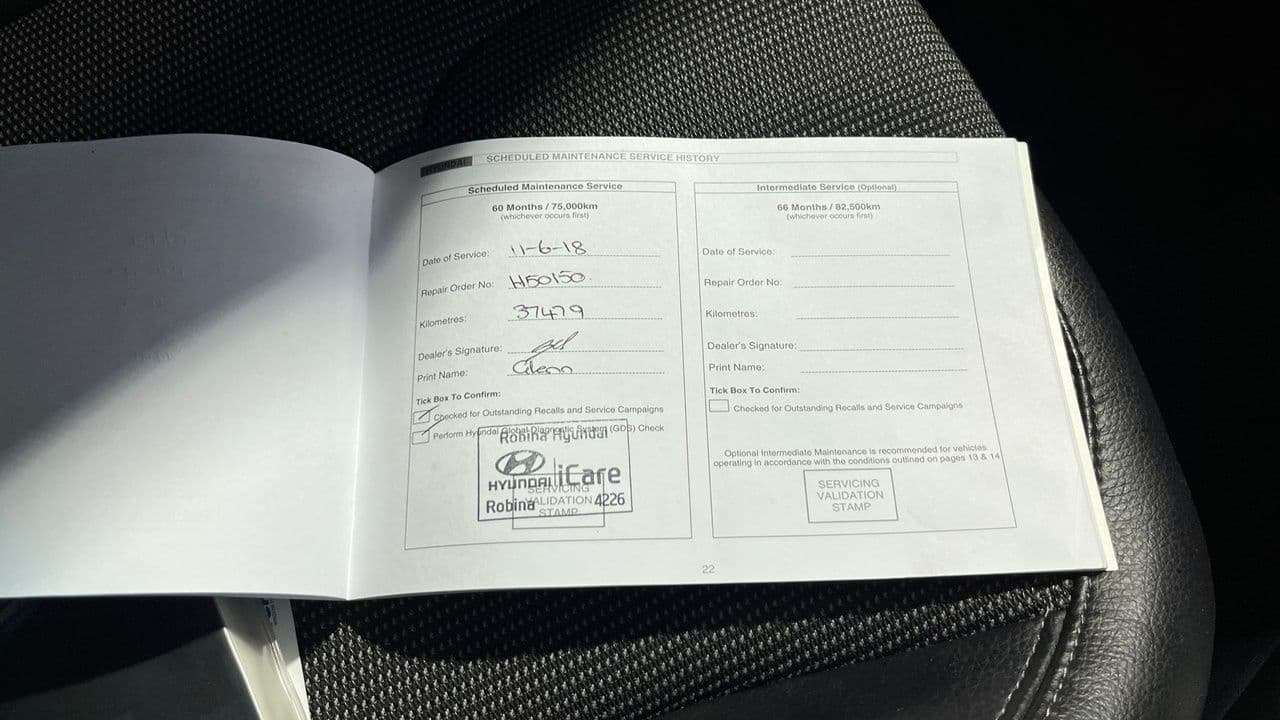 HYUNDAI SCHEDULED MAINTENANCE SERVICE HISTORY
Scheduled Maintenance Service
60 Months / 75,000km
(whichever occurs first)
Date of Service: 11-6-18
Repair Order No: H50150.
Kilometres: 37479
Dealer's Signature:
Print Name: Glenn
Tick Box To Confirm:
Checked for Outstanding Recalls and Service Campaigns
Perform Hyundai Global Diagnostic System (GDS) Check
Robina Hyundai
HYUNDAI iCare
Robina 4226
SERVICING
VALIDATION
STAMP
Intermediate Service (Optional)
66 Months / 82,500km
(whichever occurs first)
Date of Service:
Repair Order No:
Kilometres:
Dealer's Signature:
Print Name:
Tick Box To Confirm:
Checked for Outstanding Recalls and Service Campaigns
Optional Intermediate Maintenance is recommended for vehicles
operating in accordance with the conditions outlined on pages 13 & 14
SERVICING
VALIDATION
STAMP
22